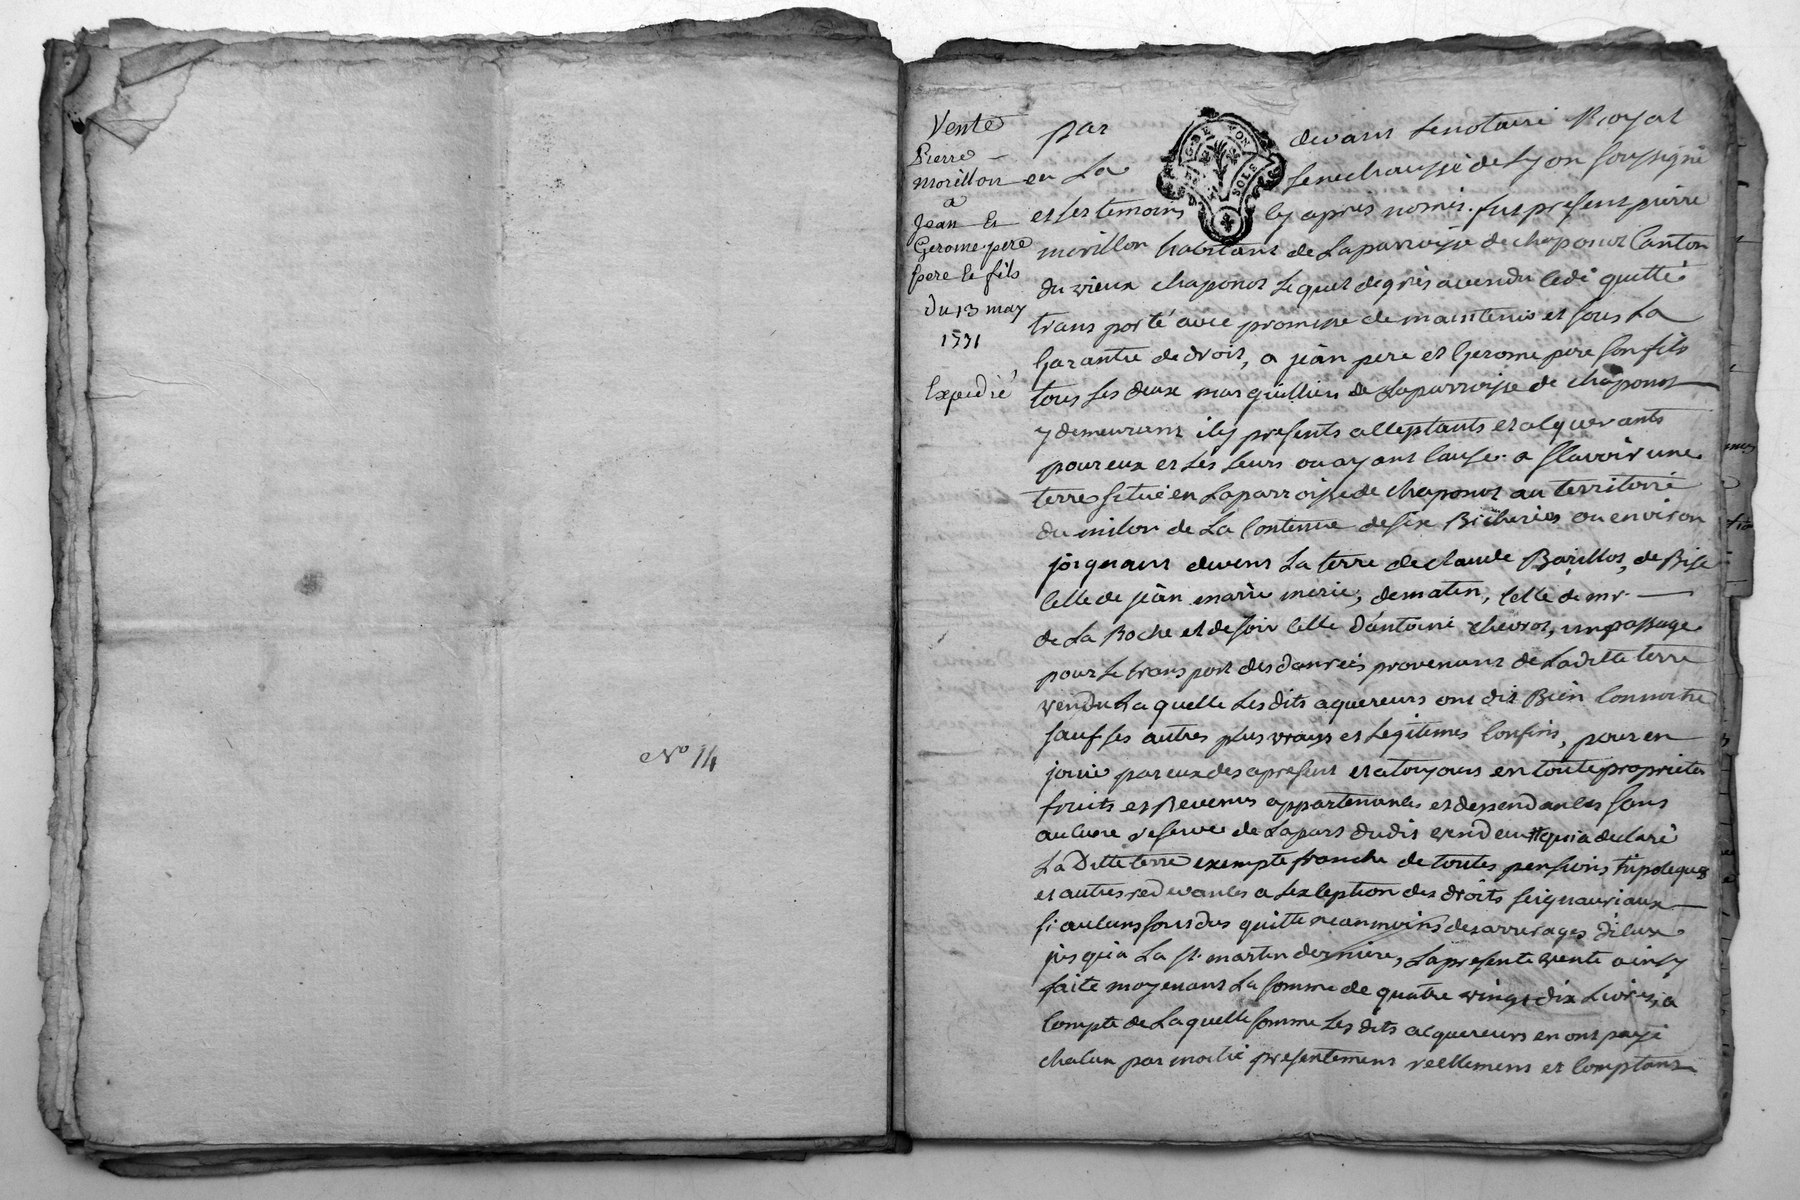 No 14
Vente
Pierre
morillon
a
Jean Et
Gerome pere
pere Et fils
Du 13 may
1771
Expedié
par devant Lenotaire Royal
en La senechaussé de Lyon soussigné
et Les temoins cy apres només. fut present pierre
morillon habitant de Laparroisse de chaponot Canton
du vieux chaponot Lequel degrés avendu cedé quitté
transporté avec promesse de maintenir et sous La
Garantie de droit, a jean pere et Gerome pere son fils
tous Les deux marguilliers de Laparroisse de chaponot
y demeurant icy presents acceptants et acquerants
pour eux et Les Leurs ou ayant cause. a scavoir une
terre situé en Laparroisse de chaponot au territoire
du milon de La Contenue desix Bicherées ou environ
joignant devent La terre de claude Barillot, de Bise
celle de jean marie merie, dematin, celle de mr.
de La Roche et desoir celle d'antoine chevrot, un passage
pour Le transport des danrées provenant de Ladite terre
vendu Laquelle Lesdits aquereurs ont dit Bien Connoitre
sauf ses autres plus vrays et Legitemes Confins, pour en
jouir par eux des apresent et atoujours en toute proprieté
fruits et Revenus appartenances et dessendances sans
aucune reserve de Lapart dudit vendeur qui a declaré
La Ditte terre exempte franche de toutes pensions hipoteques
et autres redevances a Lexception des droits seignauriaux
si aucuns sons dus quitte neanmoins desarrerages d'iceux
jusqu'a La st. martin derniere, La presente vente ainsy
faite moyenant La somme de quatre vingt dix Livres, a
compte de Laquelle somme Les dits acquereurs en ont payé
chacun par moitié presentement reellement et Comptant